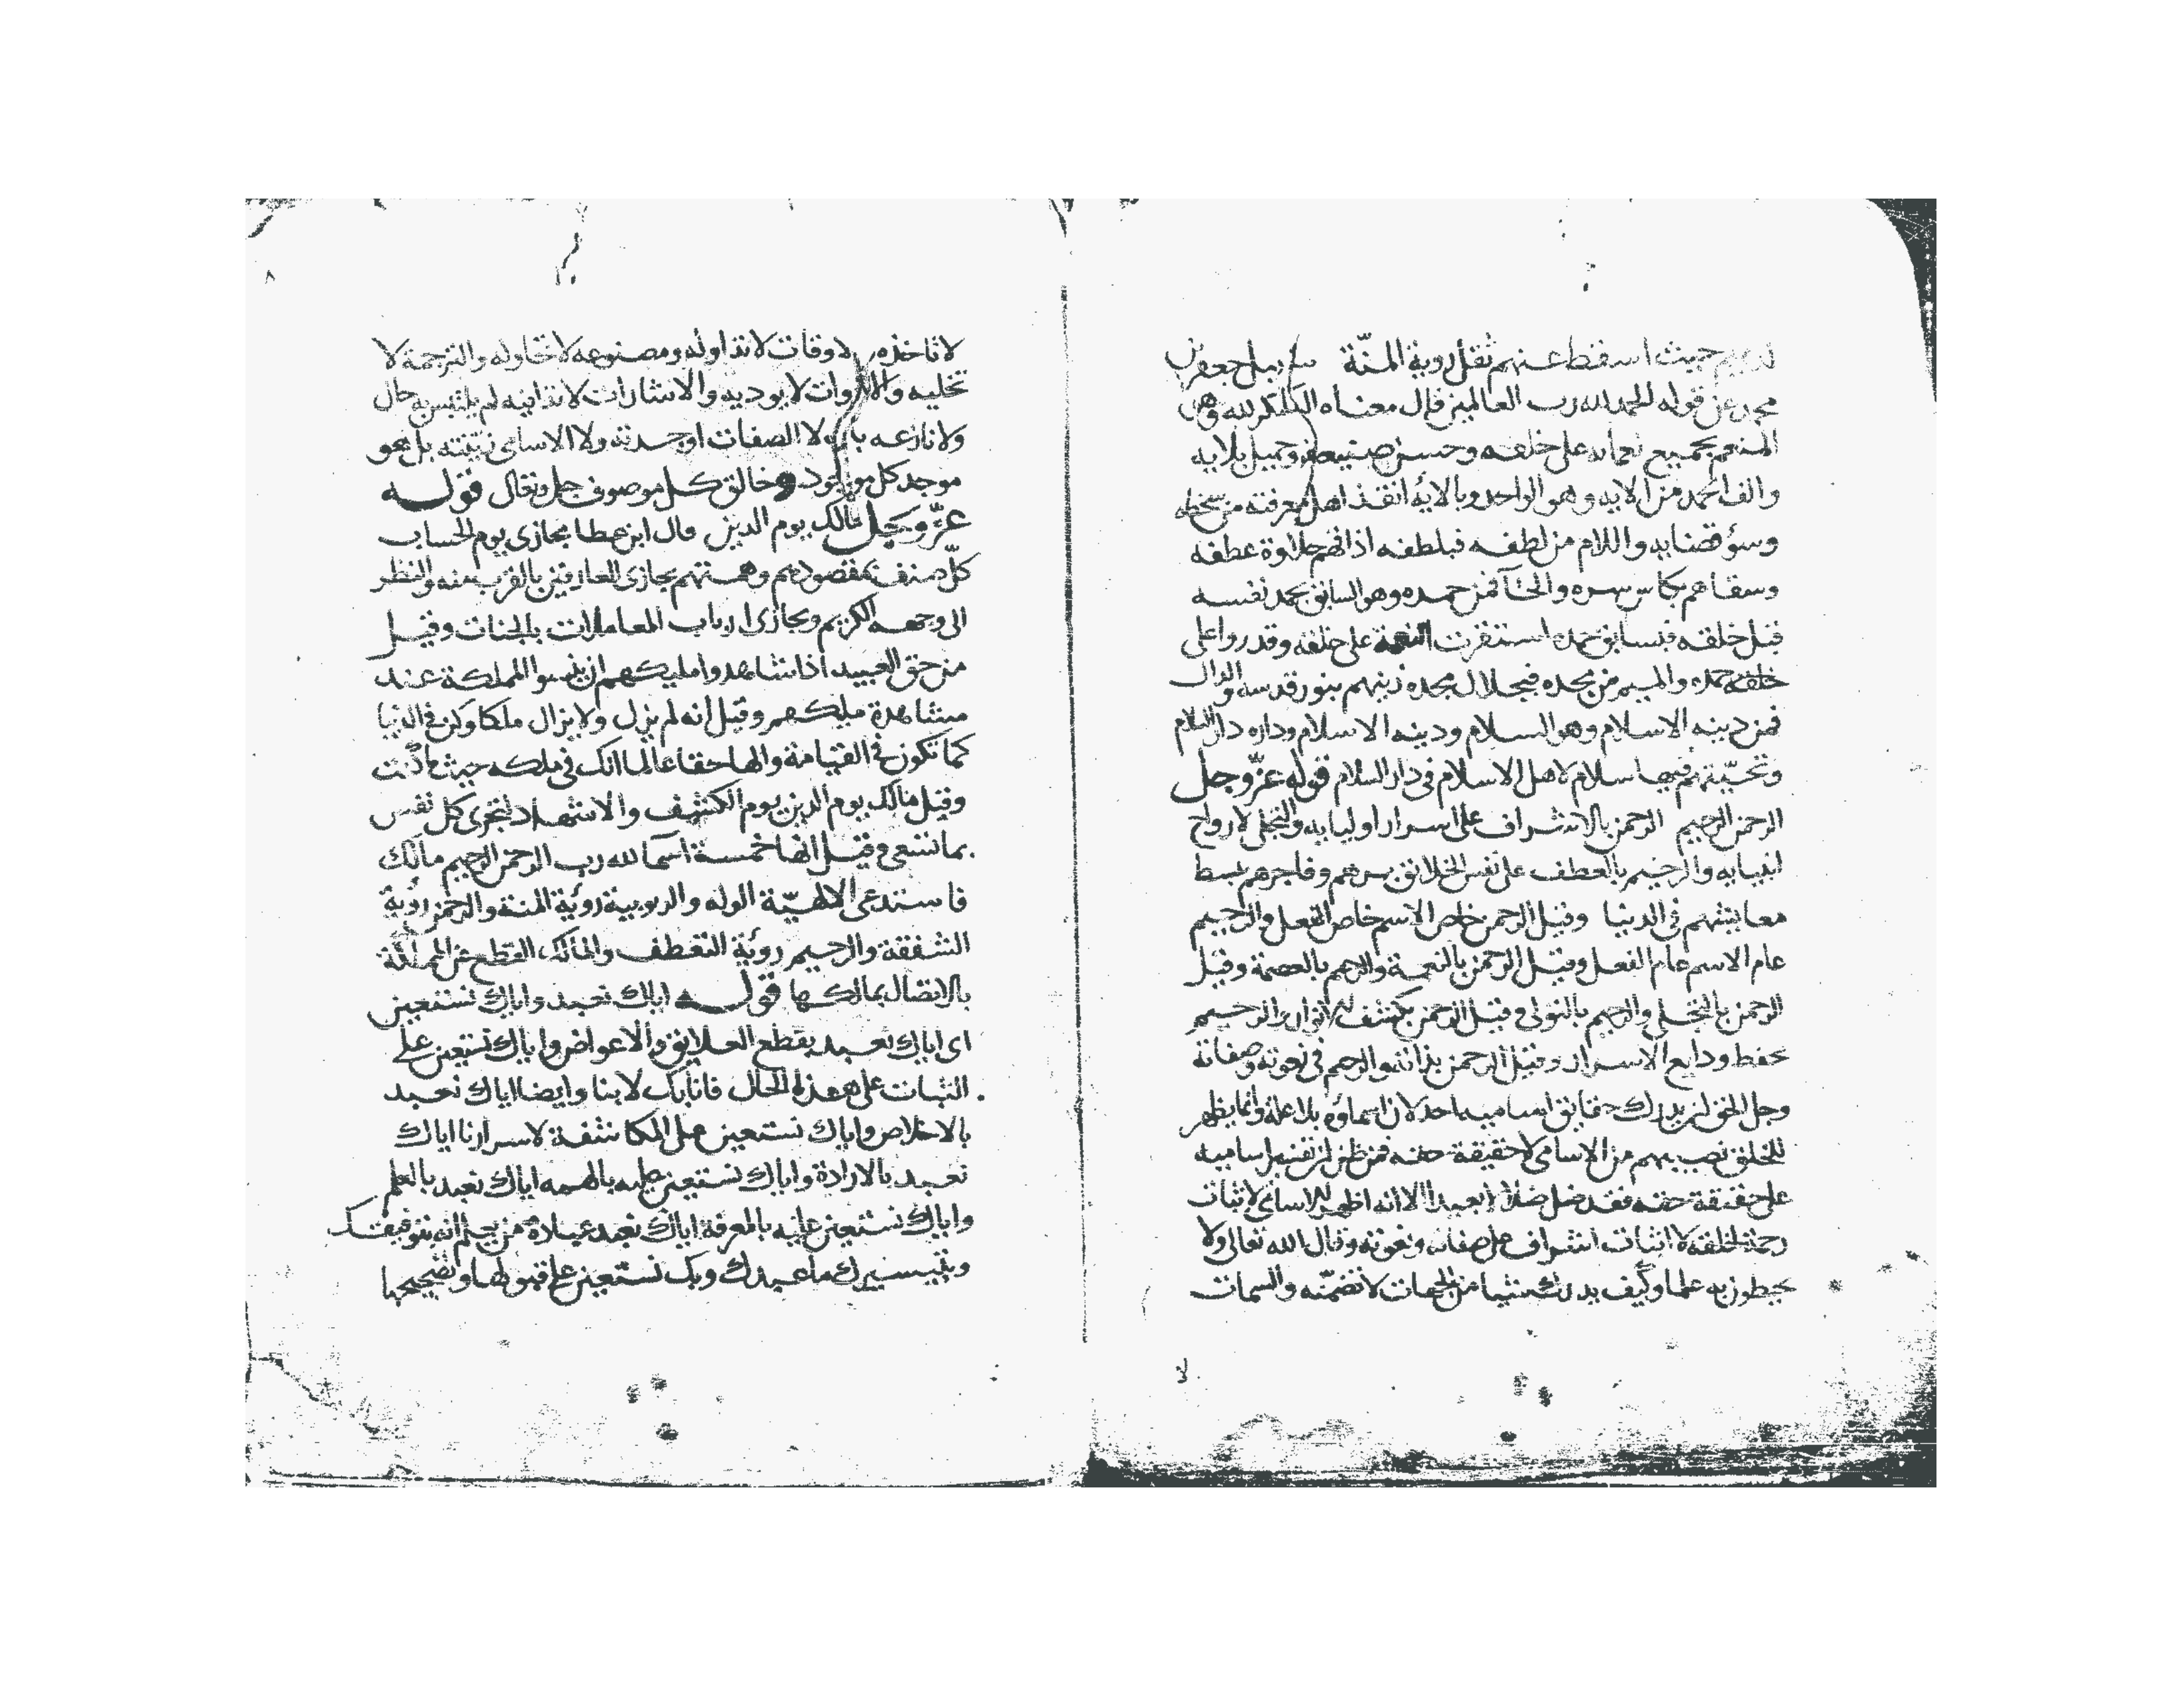 حيث اسقط عنهم ثقل روية المنّة سيل جعفر بن
محمد عن قوله الحمد لله رب العالمين قال معناه الشكر لله وهو
المنعم بجميع نعمائه على خلقه وحسن صنيعه وجميل بلايه
والف الحمد من الايه وهو الواحد وبالايه انقذ اهل معرفته من سخطه
وسؤ قضايه واللام من لطفه فبلطفه اذاقهم حلاوة عطفه
وسقاهم بكاس سره والحآ فمن حمده وهو السابق بحمد نفسه
قبل خلقه فبسابق حمده استقرت النعمة على خلقه وقدروا على
حمده والميم من مجده فبجلال مجده زينهم بنور قدسه والدال
فمن دينه الاسلام وهو السلام ودينه الاسلام وداره دار السلام
وتحيّتهم فيها سلام لاهل الاسلام في دار السلام قوله عزّ وجل
الرحمن الرحيم الرحمن بالاشراف على اسرار اوليايه والتجلى لارواح
انبيايه والرحيم بالعطف على نفس الخلائق برهم وفاجرهم ببسط
معايشهم في الدنيا وقيل الرحمن خاص الاسم خاص الفعل والرحيم
عام الاسم عام الفعل وقيل الرحمن بالنعمة والرحيم بالعصمة وقيل
الرحمن بالتجلى والرحيم بالتولى وقيل الرحمن بكشف الانوار والرحيم
بحفظ ودايع الاسرار وقيل الرحمن بذاته والرحيم في نعوته وصفاته
وجل الحق ان يدرك حقايق اساميه احد لان اسماؤه بلا علة وانما يظهر
للخلق نصيبهم من الاسامى لا حقيقة حقه فمن ظن ان اساميه
على حقيقة حقه فقد ضل ضلالا بعيدا الا انه اظهر الاسامى لاثبات
رحمة لخلقه لا اثبات اشراف على صفاته ونعوته وقال الله تعالى ولا
يحيطون به علما وكيف يدرك شيا من الجهات لا تضمّنه والسمات
لا تاخذه والاوقات لا تداوله ومصنوعه لا تحاوله والترجمة لا
تخليه لا يوديه والاشارات لا تدانيه لم يلتبس به حال
ولا نازعه بال لا الصفات اوجدته ولا الاسامى زينته بل هو
موجد كل موجود وخالق كل موصوف جل وتعالى قوله
عزّ وجل مالك يوم الدين قال ابن عطا يجازى يوم الحساب
كلّ صنف بمقصودهم وهمتهم يجازى العارفين بالقرب منه والنظر
الى وجهه الكريم ويجازى ارباب المعاملات بالجنات وقيل
من حق العبيد اذا شاهدوا مليكهم ان ينسوا المملكة عند
مشاهدة مليكهم وقيل انه لم يزل ولا يزال ملكا وكن في الدنيا
كما تكون في القيامة والها حقا عالما انك في ملكه حيث ما كنت
وقيل مالك يوم الدين يوم الكشف والاشهاد لتجزى كل نفس
بما تسعى وقيل انها خمسة اسما لله رب الرحمن الرحيم مالك
فاستدعى الالهيّة الوله والربوبية روية المنة والرحمن روية
الشفقة والرحيم روية التعطف والمالك القطع عن المملكة
بالاتصال بمالكها قوله اياك نعبد واياك نستعين
اى اياك نعبد بقطع العلايق والاعواض واياك نستعين على
الثبات على هذه الحال فانا بك لا بنا وايضا اياك نعبد
بالاخلاص واياك نستعين على المكاشفة لاسرارنا اياك
نعبد بالارادة واياك نستعين عليه بالهمه اياك نعبد بالعلم
واياك نستعين عليه بالمعرفة اياك نعبد عبادة من يعلم انه بتوفيقك
وبتيسيرك ما عبدك وبك نستعين على قبولها وتصحيحها